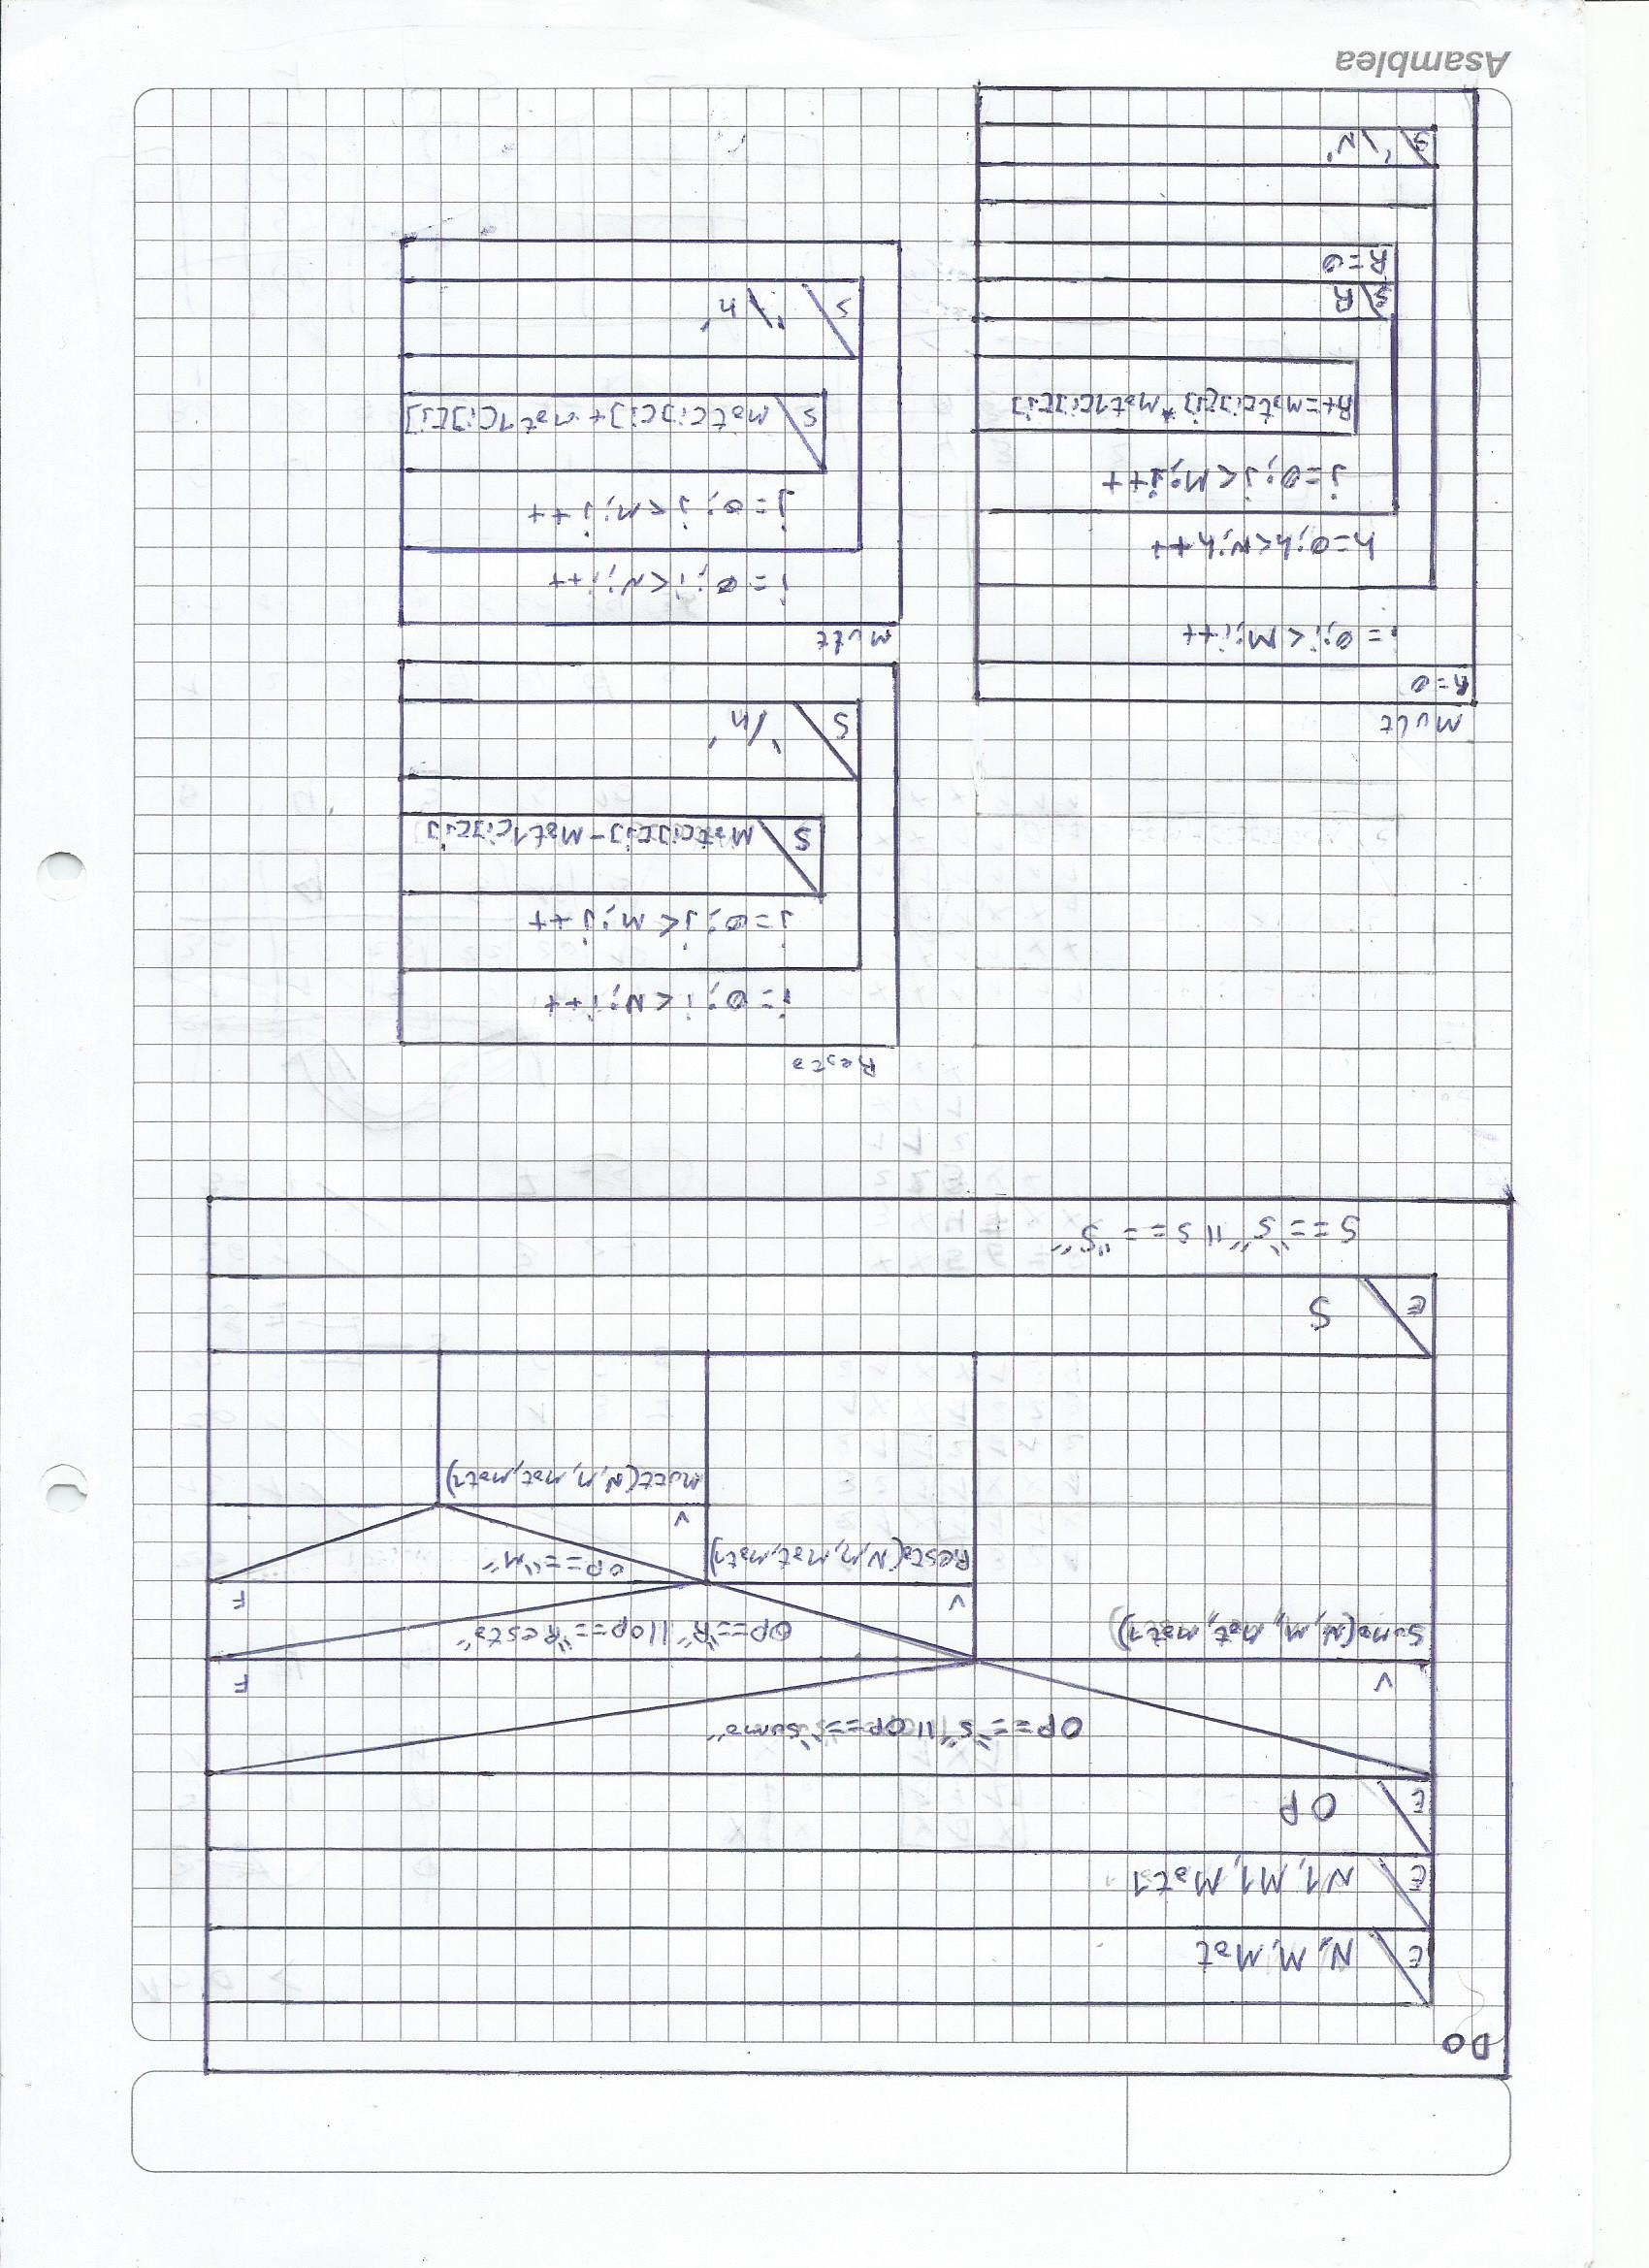 DO
E N, M, Mat
E N1, M1, Mat1
E OP
OP=="S"||OP=="Suma"
V F
Suma(N, M, Mat, mat1)
OP=="R"||op=="Resta"
V F
Resta(N,M,mat,mat1)
OP=="M"
V
Mult(N,M,mat,mat1)
E S
S=="s"||s=="S"
Resta
i=0; i<N; i++
j=0; j<M; j++
S Mat[i][j]-Mat1[i][j]
S '/n'
Mult
R=0
i=0; i<M; i++
h=0; h<N; h++
j=0; j<M; j++
R+=mat[i][j]*Mat1[i][j]
S R
R=0
S '\N'
Mult
i=0; i<N; i++
j=0; j<M; j++
S Mat[i][j]+mat1[i][j]
S '\n'
Asamblea